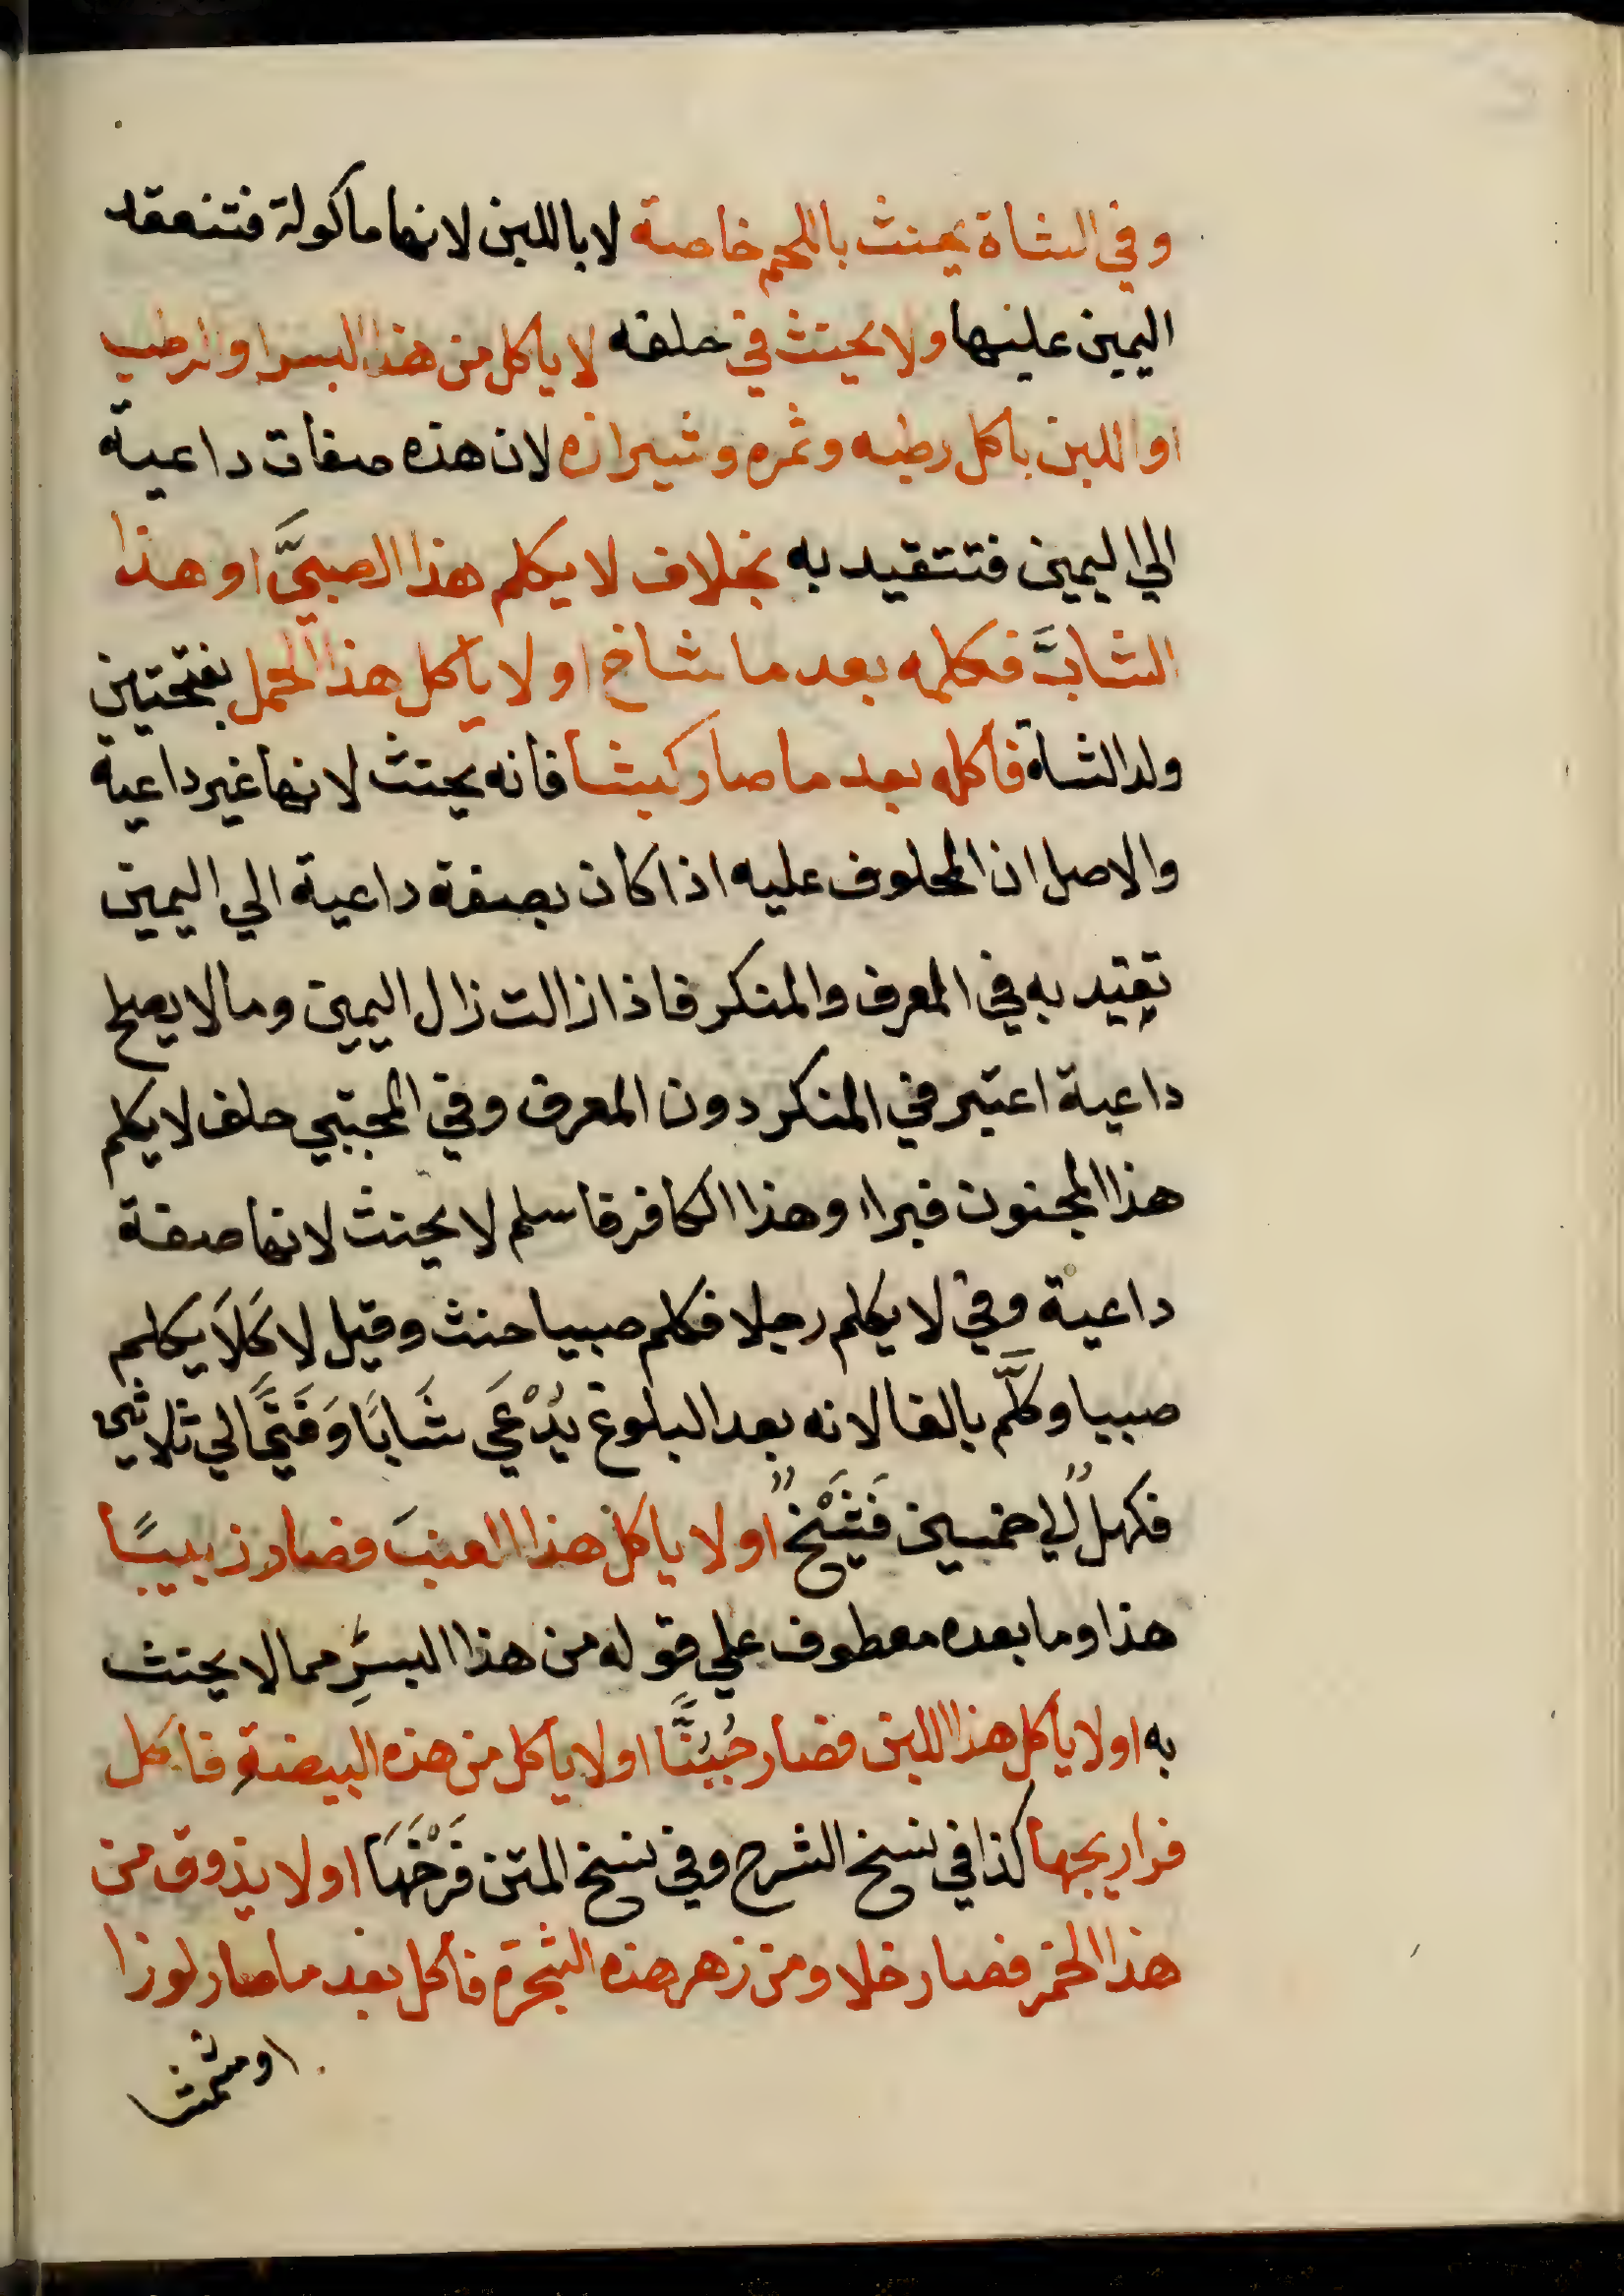 وفي الشاة يحنث باللحم خاصة لا باللبن لانها ماكولة فتنعقد
اليمين عليها ولا يحنث في حلفه لا ياكل من هذا البسر او الرطب
او اللبن باكل رطبه وتمره وشيرازه لان هذه صفات داعية
الي اليمين فتتقيد به بخلاف لا يكلم هذا الصبيَّ او هذا
الشابَّ فكلمه بعد ما شاخ او لا ياكل هذا الحمل بفتحتين
ولد الشاة فاكله بعد ما صار كبشا فانه يحنث لانها غير داعية
والاصل ان المحلوف عليه اذا كان بصفة داعية الي اليمين
تقيد به في المعرف والمنكر فاذا زالت زال اليمين وما لا يصلح
داعية اعتبر في المنكر دون المعرف وفي المجتبي حلف لا يكلم
هذا المجنون فبرا او هذا الكافر فاسلم لا يحنث لانها صفة
داعية وفي لا يكلم رجلا فكلم صبيا حنث وقيل لا كَلَا يكلم
صبيا وكلَّم بالغا لانه بعد البلوغ يُدْعَي شَابًا وَفَتًي الي ثلاثين
فكهلٌ الي خمسين فَشَيْخٌ او لا ياكل هذا العنبَ فصار زبيبًا
هذا وما بعده معطوف علي قوله من هذا البسرِ مما لا يحنث
به او لا ياكل هذا اللبن فصار جُبُنًّا او لا ياكل من هذه البيضةِ فاكل
فراريجها كذا في نسخ الشرح وفي نسخ المتن فَرْخَهَا او لا يذوق من
هذا الخمر فصار خلا او من زهر هذه الشجرة فاكل بعد ما صار لوزا
او مشمشا